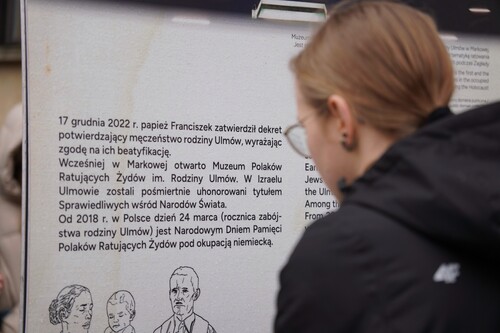 17 grudnia 2022 r. papież Franciszek zatwierdził dekret
potwierdzający męczeństwo rodziny Ulmów, wyrażając
zgodę na ich beatyfikację.
Wcześniej w Markowej otwarto Muzeum Polaków
Ratujących Żydów im. Rodziny Ulmów. W Izraelu
Ulmowie zostali pośmiertnie uhonorowani tytułem
Sprawiedliwych wśród Narodów Świata.
Od 2018 r. w Polsce dzień 24 marca (rocznica zabój-
stwa rodziny Ulmów) jest Narodowym Dniem Pamięci
Polaków Ratujących Żydów pod okupacją niemieckią.
Earl
Jews
the Ul
Among th
From 2
4F